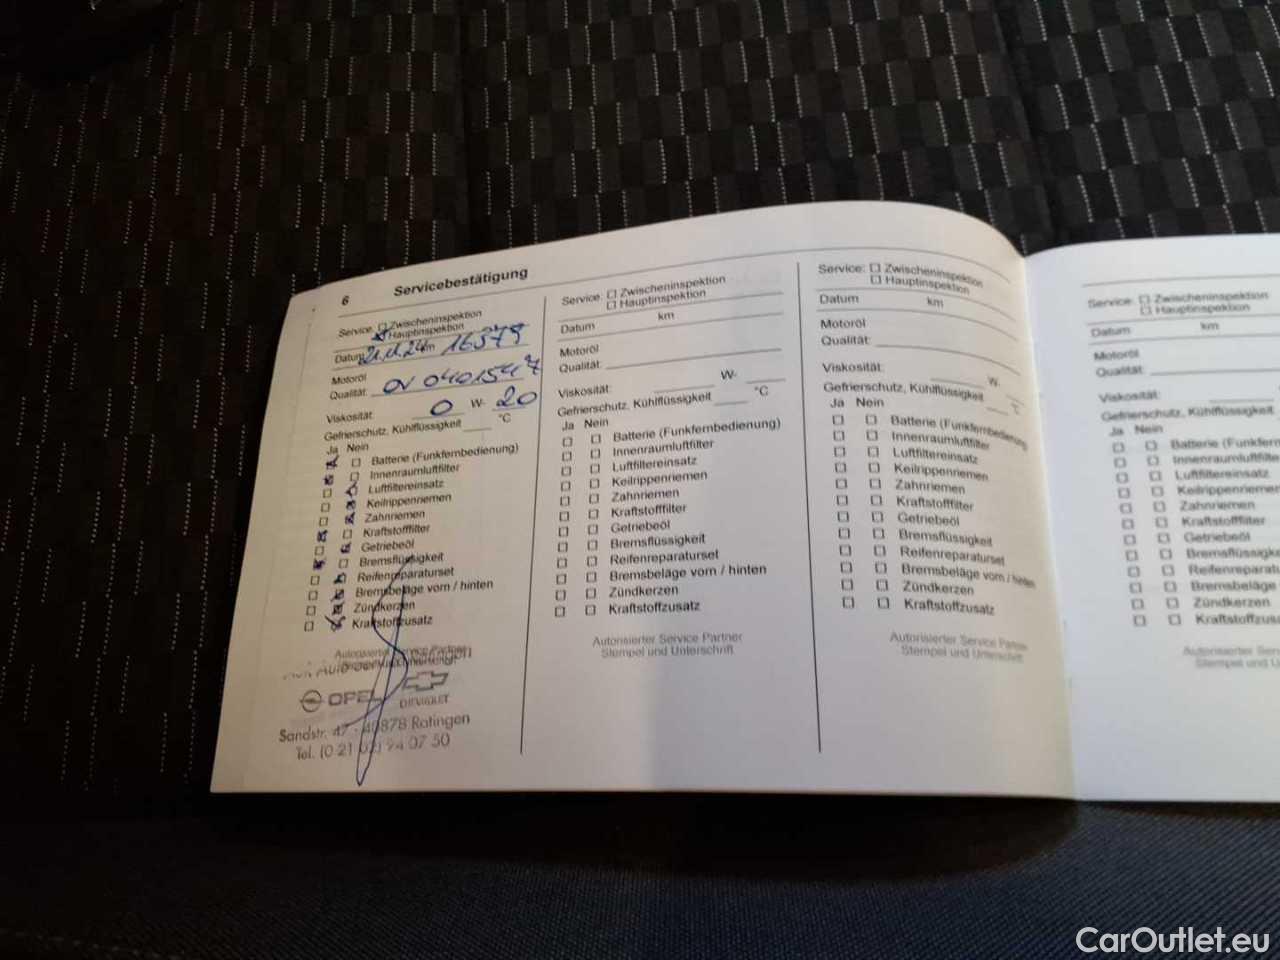 6 Servicebestätigung
Service: ☐ Zwischeninspektion
☒ Hauptinspektion
Datum 21.11.24 km 16579
Motoröl
Qualität: OV 0401547
Viskosität: 0 W- 20
Gefrierschutz, Kühlflüssigkeit °C
Ja Nein
Batterie (Funkfernbedienung)
Innenraumluftfilter
Luftfiltereinsatz
Keilrippenriemen
Zahnriemen
Kraftstofffilter
Getriebeöl
Bremsflüssigkeit
Reifenreparaturset
Bremsbeläge vorn / hinten
Zündkerzen
Kraftstoffzusatz
Autorisierter Service Partner
OPEL CHEVROLET
Sandstr. 47 · 40878 Ratingen
Tel. (0 21 02) 94 07 50
Service: ☐ Zwischeninspektion
☐ Hauptinspektion
Datum km
Motoröl
Qualität:
Viskosität: W-
Gefrierschutz, Kühlflüssigkeit °C
Ja Nein
Batterie (Funkfernbedienung)
Innenraumluftfilter
Luftfiltereinsatz
Keilrippenriemen
Zahnriemen
Kraftstofffilter
Getriebeöl
Bremsflüssigkeit
Reifenreparaturset
Bremsbeläge vorn / hinten
Zündkerzen
Kraftstoffzusatz
Autorisierter Service Partner
Stempel und Unterschrift
Service: ☐ Zwischeninspektion
☐ Hauptinspektion
Datum km
Motoröl
Qualität:
Viskosität: W-
Gefrierschutz, Kühlflüssigkeit °C
Ja Nein
Batterie (Funkfernbedienung)
Innenraumluftfilter
Luftfiltereinsatz
Keilrippenriemen
Zahnriemen
Kraftstofffilter
Getriebeöl
Bremsflüssigkeit
Reifenreparaturset
Bremsbeläge vorn / hinten
Zündkerzen
Kraftstoffzusatz
Autorisierter Service Partner
Stempel und Unterschrift
Service: ☐ Zwischeninspektion
☐ Hauptinspektion
Datum km
Motoröl
Qualität:
Viskosität:
Gefrierschutz, Kühlflüssigkeit
Ja Nein
Batterie (Funkfern
Innenraumluftfilter
Luftfiltereinsatz
Keilrippenriemen
Zahnriemen
Kraftstofffilter
Getriebeöl
Bremsflüssigke
Reifenreparatu
Bremsbeläge
Zündkerzen
Kraftstoffzus
Autorisierter Se
Stempel und
CarOutlet.eu